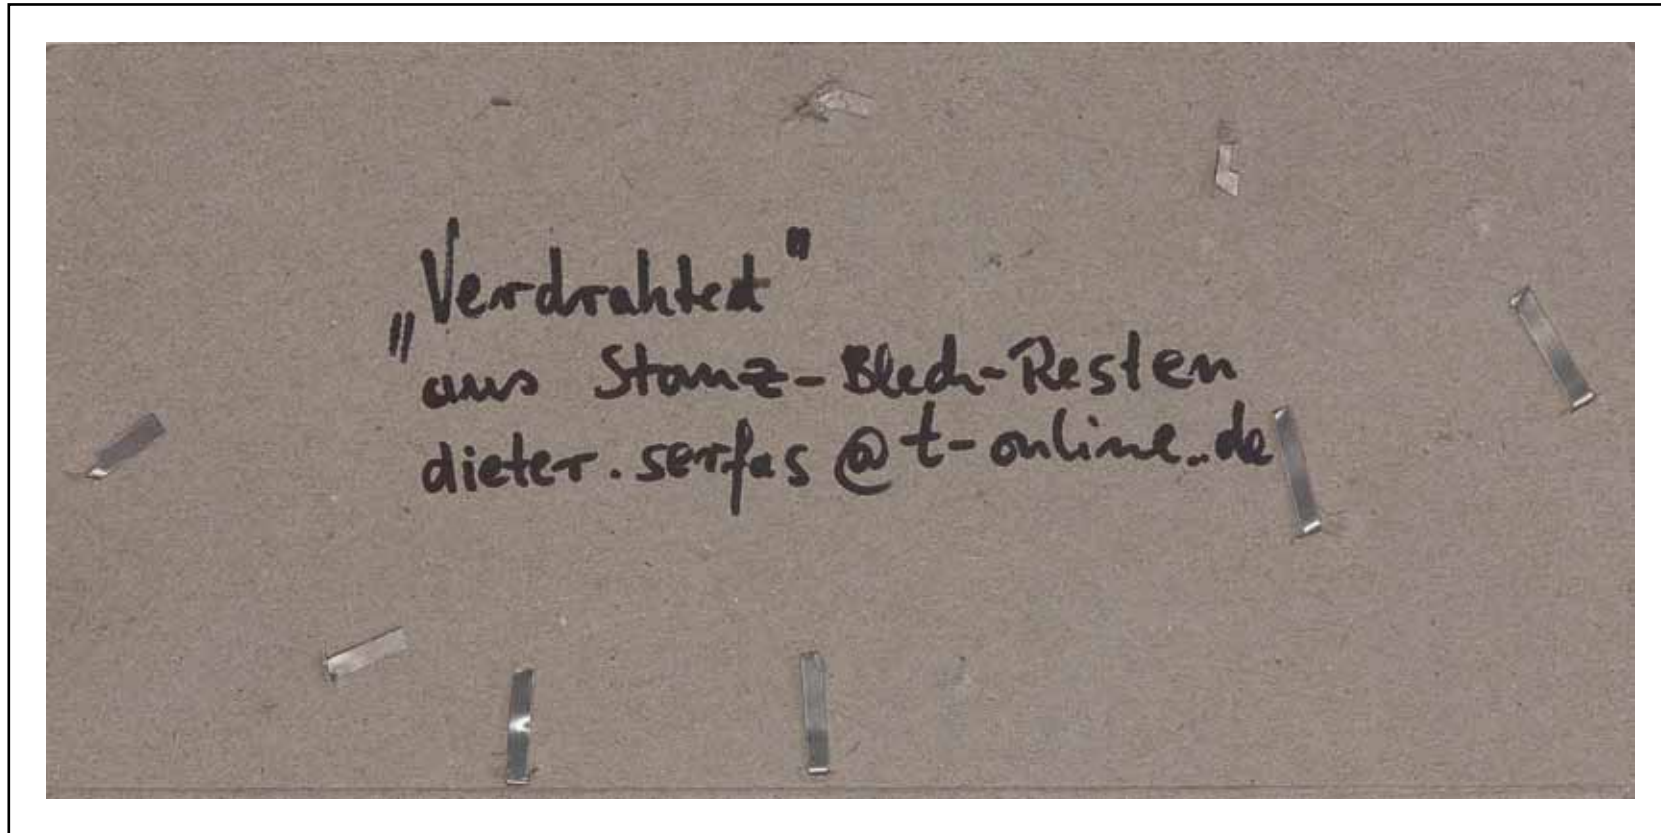 „Verdrahtet"
aus Stanz-Blech-Resten
dieter.serfas@t-online.de